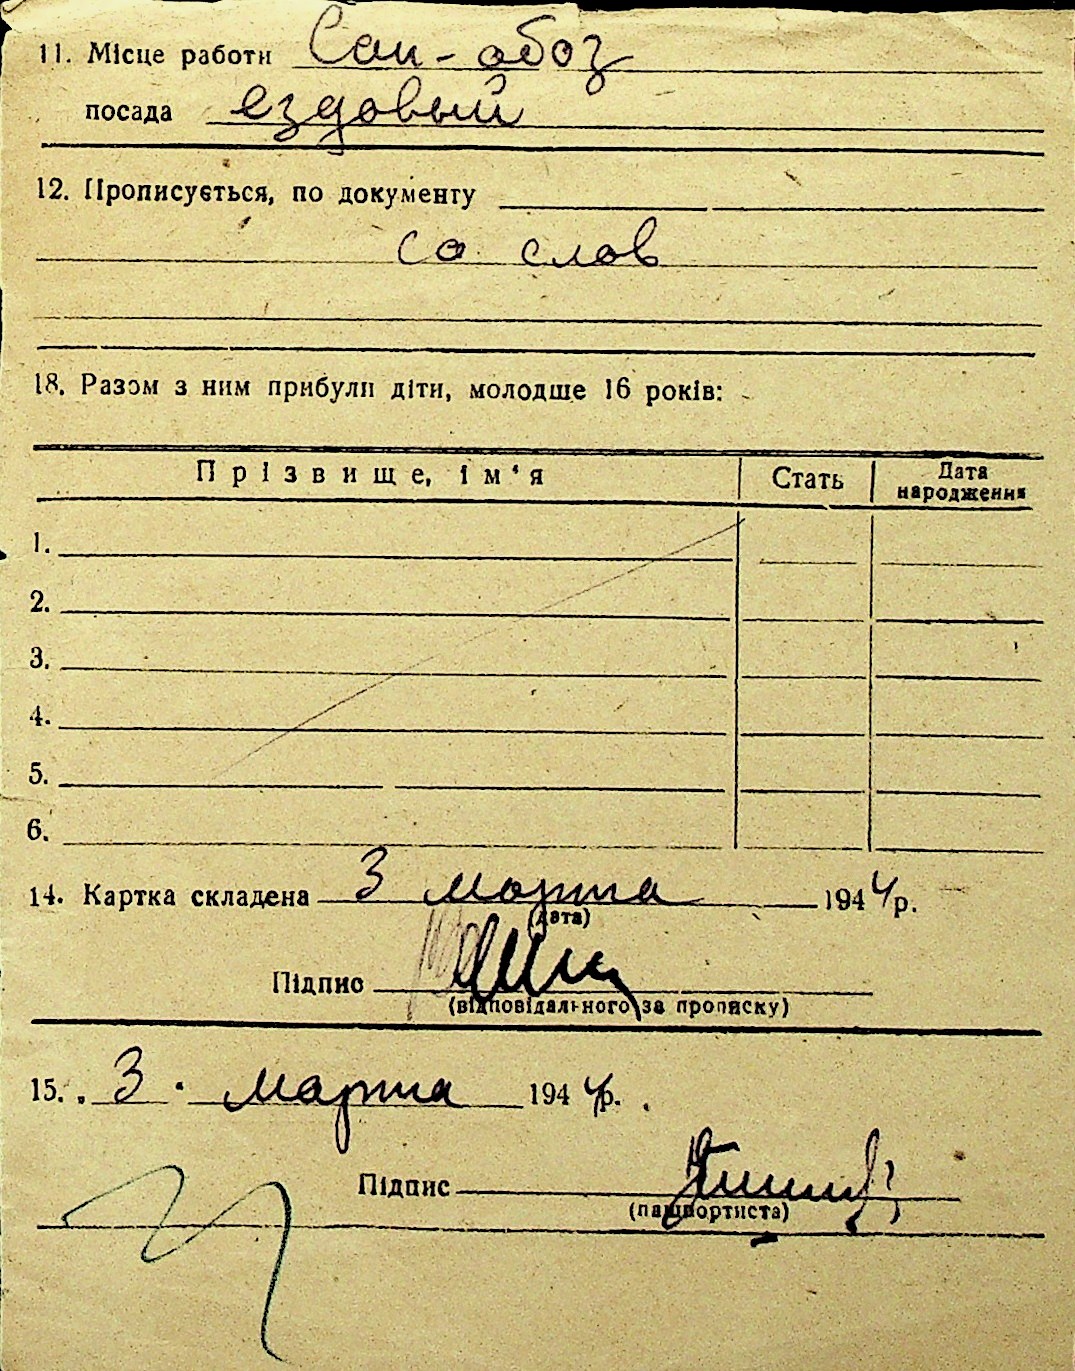 11. Місце работи Сан-обоз
посада ездовый
12. Прописується, по документу
со слов
18. Разом з ним прибули діти, молодше 16 років:
Прізвище, ім'я Стать Дата народження
1.
2.
3.
4.
5.
6.
14. Картка складена 3 марта 1944 р.
(дата)
Підпис
(відповідального за прописку)
15. 3 марта 1944 р.
Підпис
(паспортиста)